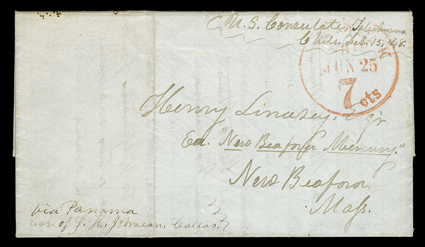 U.S. Consulate, Talcahuano
Chile, Feb. 15, 48.
JUN 25
7 cts
Henry Lindsey, Esqr
Ed. "New Bedford Mercury."
New Bedford
Mass.
via Panama
care of J. H. Johnson, Callao.